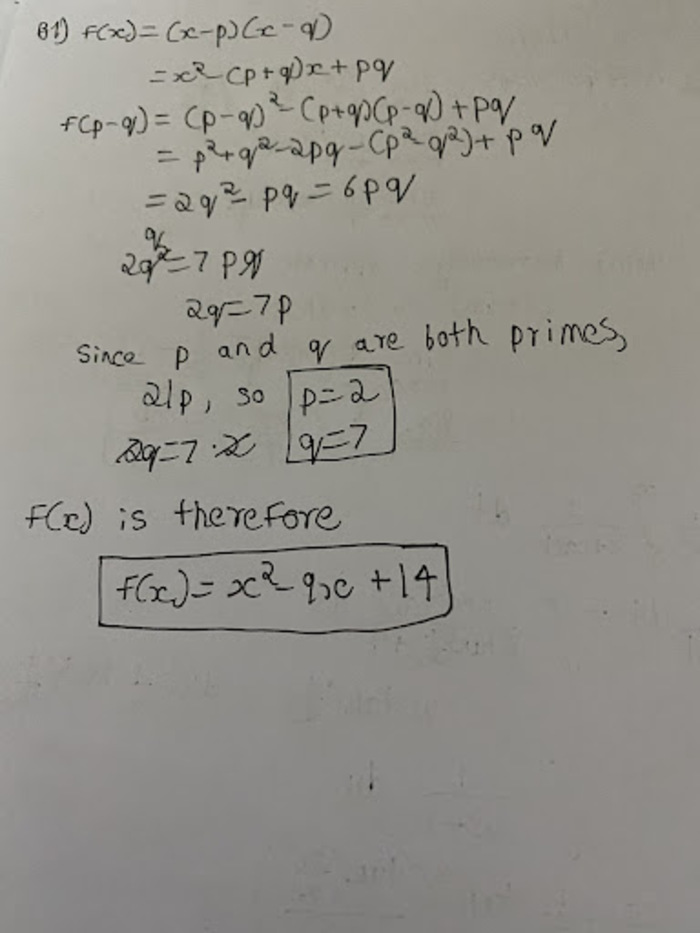 B1) f(x) = (x-p)(x-q)
= x² - (p+q)x + pq
f(p-q) = (p-q)² - (p+q)(p-q) + pq
= p² + q² - 2pq - (p² - q²) + pq
= 2q² - pq = 6pq
q
2q² = 7pq
2q = 7p
Since p and q are both primes,
2|p, so p = 2
2q = 7 · 2 q = 7
f(x) is therefore
f(x) = x² - 9x + 14